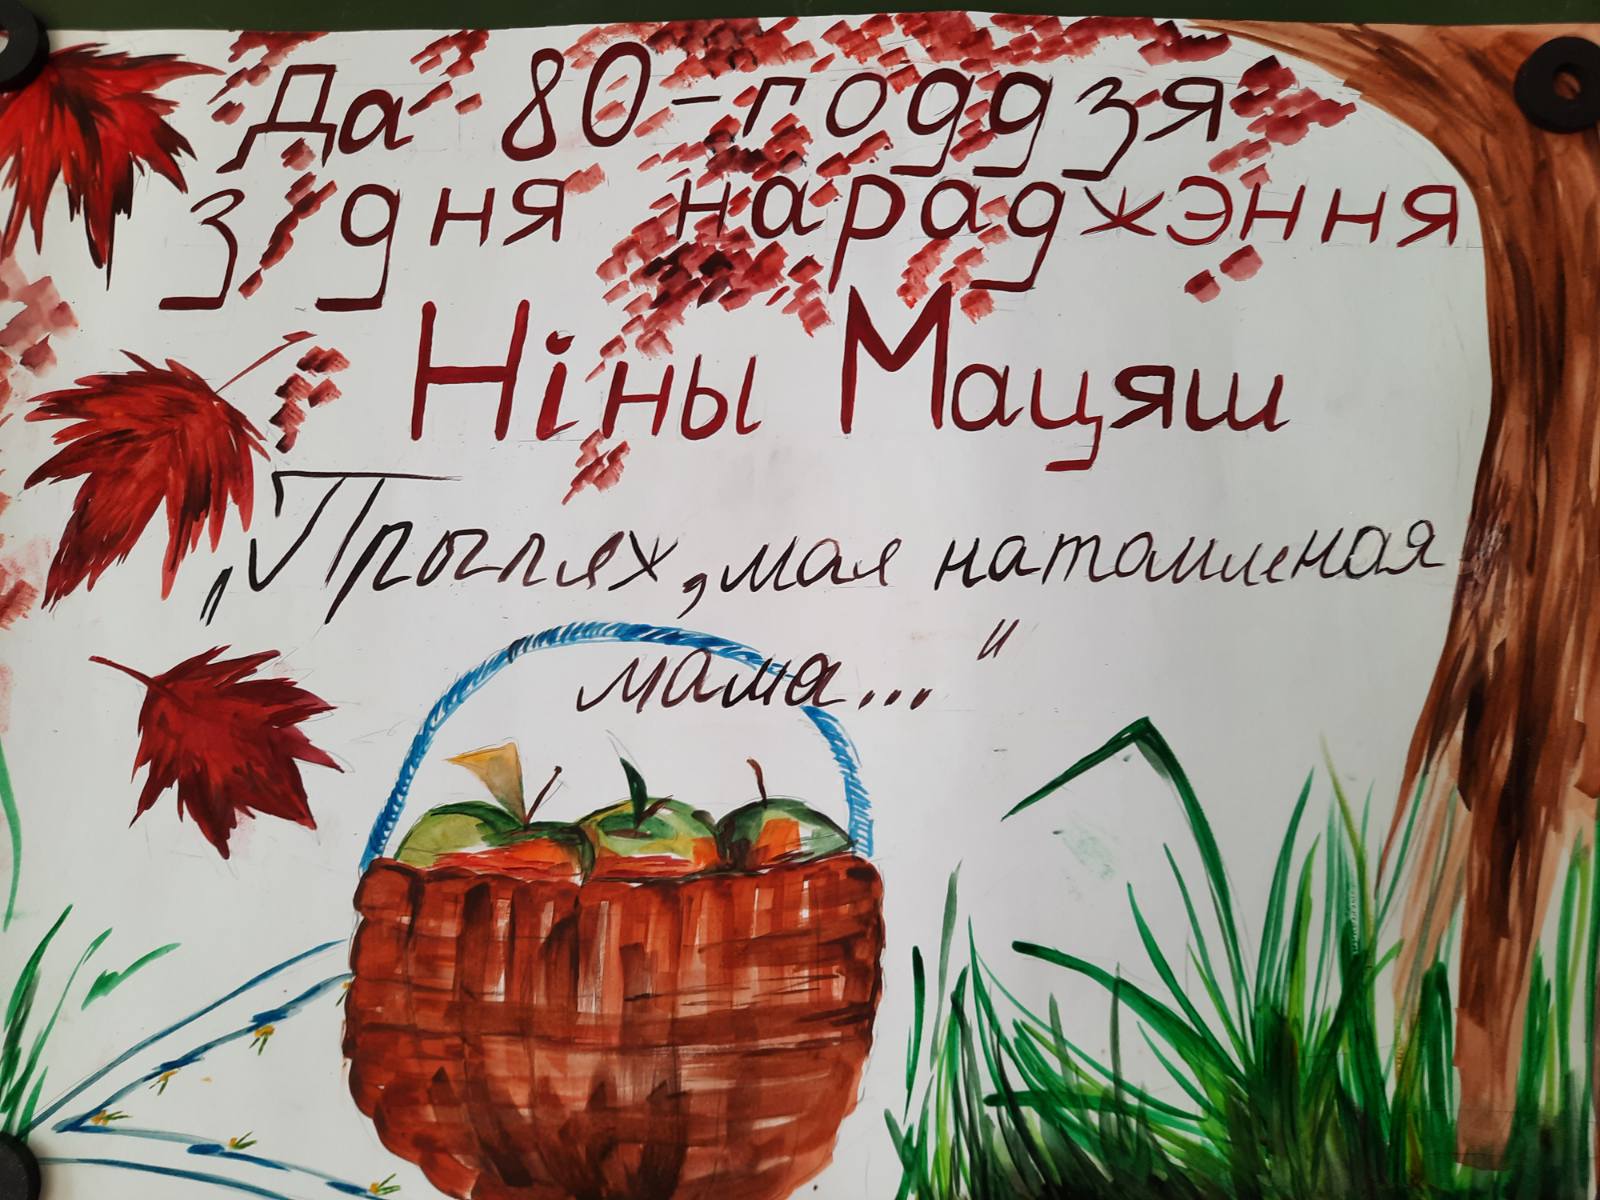 Да 80-годдзя
з дня нараджэння
Ніны Мацяш
„Прыпях, мая натомленая
мама..."